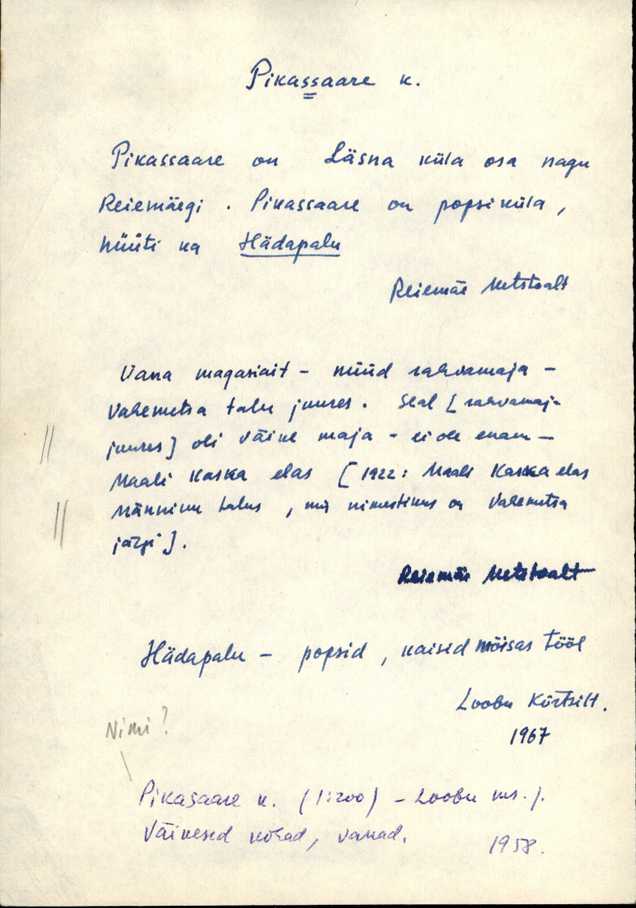 Pikassaare k.
Pikassaare on Läsna küla osa nagu
Reiemäegi. Pikassaare on popsiküla,
hüüti ka Hädapalu
Reiemäe Metstoalt
Vana magasiait – nüüd rahvamaja –
Vahemetsa talu juures. Seal [rahvamaj-
juures] oli väine maja – ei ole enam –
Maali Kaska elas [1922: Maali Kaska elas
Männinu talus, mis nimestikus on Vahemetsa
järgi].
Reiemäe Metstoalt
Hädapalu – popsid, kaisid mõisas tööl
Loobu Kõrtsilt.
1967
Nimi?
Pikasaare k. (1:200) – Loobu ms.j.
Väinesed kohad, vanad. 1958.